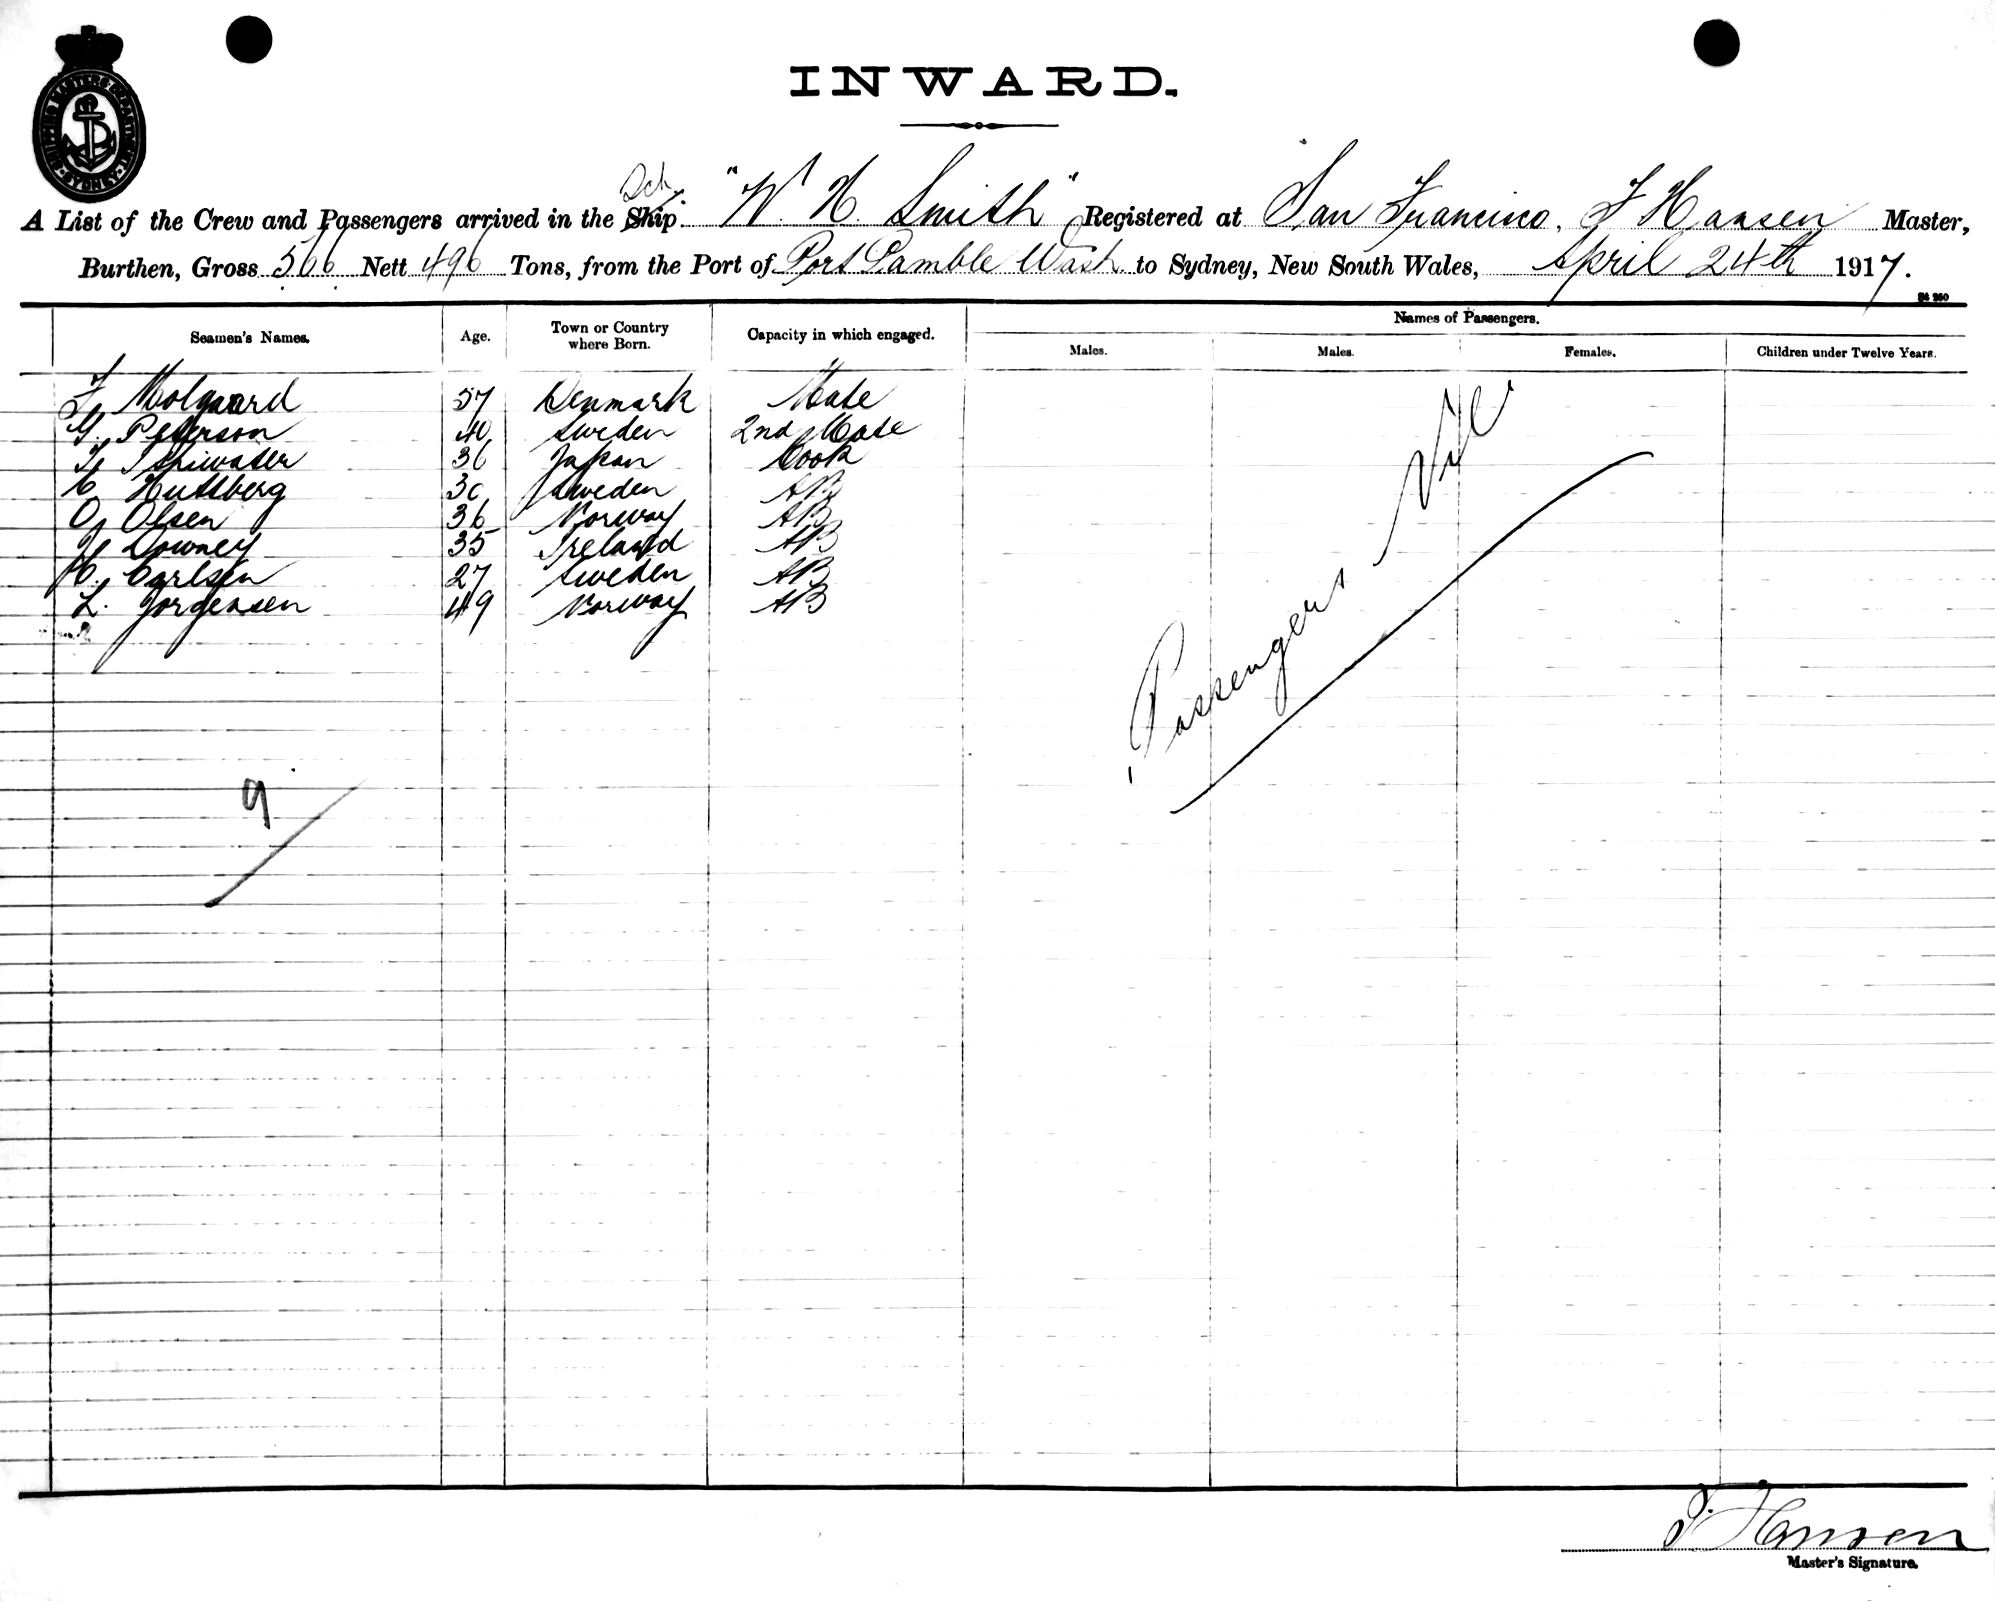 SHIPPING MASTERS DEPARTMENT
SYDNEY
INWARD.
Sch.
A List of the Crew and Passengers arrived in the Ship. "W. H. Smith" Registered at San Francisco, F Hansen Master,
Burthen, Gross 566 Nett 496 Tons, from the Port of Port Gamble Wash to Sydney, New South Wales, April 24th 1917.
Seamen's Names. Age. Town or Country where Born. Capacity in which engaged. Names of Passengers.
Males. Males. Females. Children under Twelve Years.
F Molgaard 57 Denmark Mate
G. Peterson 40 Sweden 2nd Mate
36 Japan Cook
C Hultberg 30 Sweden AB
O Olsen 36 Norway AB
Downey 35 Ireland AB
C. Carlsen 27 Sweden AB
L. Jorgensen 49 Norway AB
Passengers Nil
9
F. Hansen
Master's Signature.